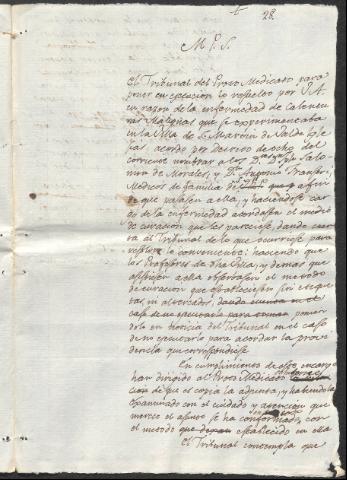 28
M. P. S.
El Tribunal del Proto Medicato para
poner en execucion lo resuelto por V. A.
en razon de la enfermedad de Calentu
ras Malignas que se experimentaba
en la Villa de S. Martin de Valde Igle
sias, acordo por Decreto de ocho del
corriente nombrar a los D.
de Morales, y D. Antonio
Medicos de familia de a fin
de que pasasen a ella, y haciendose car
go de la enfermedad acordasen el metodo
de curacion que les pareciese, dando cuen
ta al Tribunal de lo que ocurriese para
resolver lo conveniente: haciendo que
los Profesores de dha Villa, y demas que
asistiesen a ella observasen el metodo
de curacion que estableciesen sin
ni alterarlo; dando cuenta en el
caso de executarlo para tomar, ponien
dolo en noticia del Tribunal en el caso
de no executarlo para acordar la provi
dencia que correspondiese
En cumplimiento de este encargo
han dirigido al Proto Medicato
de que es copia la adjunta, y habiendola
examinado con el cuidado y atencion que
merece el asunto se ha conformado con
el metodo que dexan establecido en ella
El Tribunal contempla que